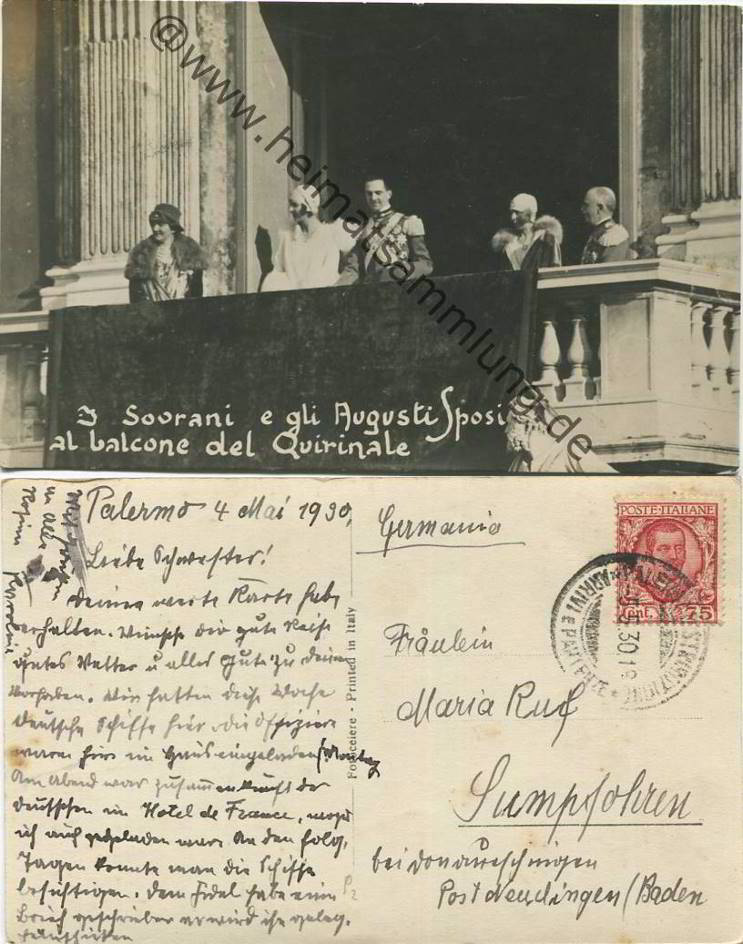 @www.heimatsammlung.de
I Sovrani e gli Augusti Sposi
al balcone del Quirinale
Palermo 4 Mai 1930,
Liebe Schwester!
Deine werte Karte habe
erhalten. Wünsche dir gute Reise
gutes Wetter u alles Gute zu deinem
Vorhaben. Wir hatten diese Woche
deutsche Schiffe hier, die Offiziere
waren hier im Haus eingeladen (Montag
Am Abend war Zusammenkunft der
deutschen im Hotel de France, wozu
ich auch geladen war. An den folg.
Tagen konnte man die Schiffe
besichtigen. Dem Fidel habe einen
Brief geschrieben er wird ihn
u alle
Karoline
Fotocelere - Printed in Italy
Germania
POSTE·ITALIANE
Cent. 75
PALERMO
ARRIVI E PARTENZE
5.5.30.19
Fräulein
Maria Ruf
Sumpfohren
bei Donaueschingen
Post Neudingen/Baden